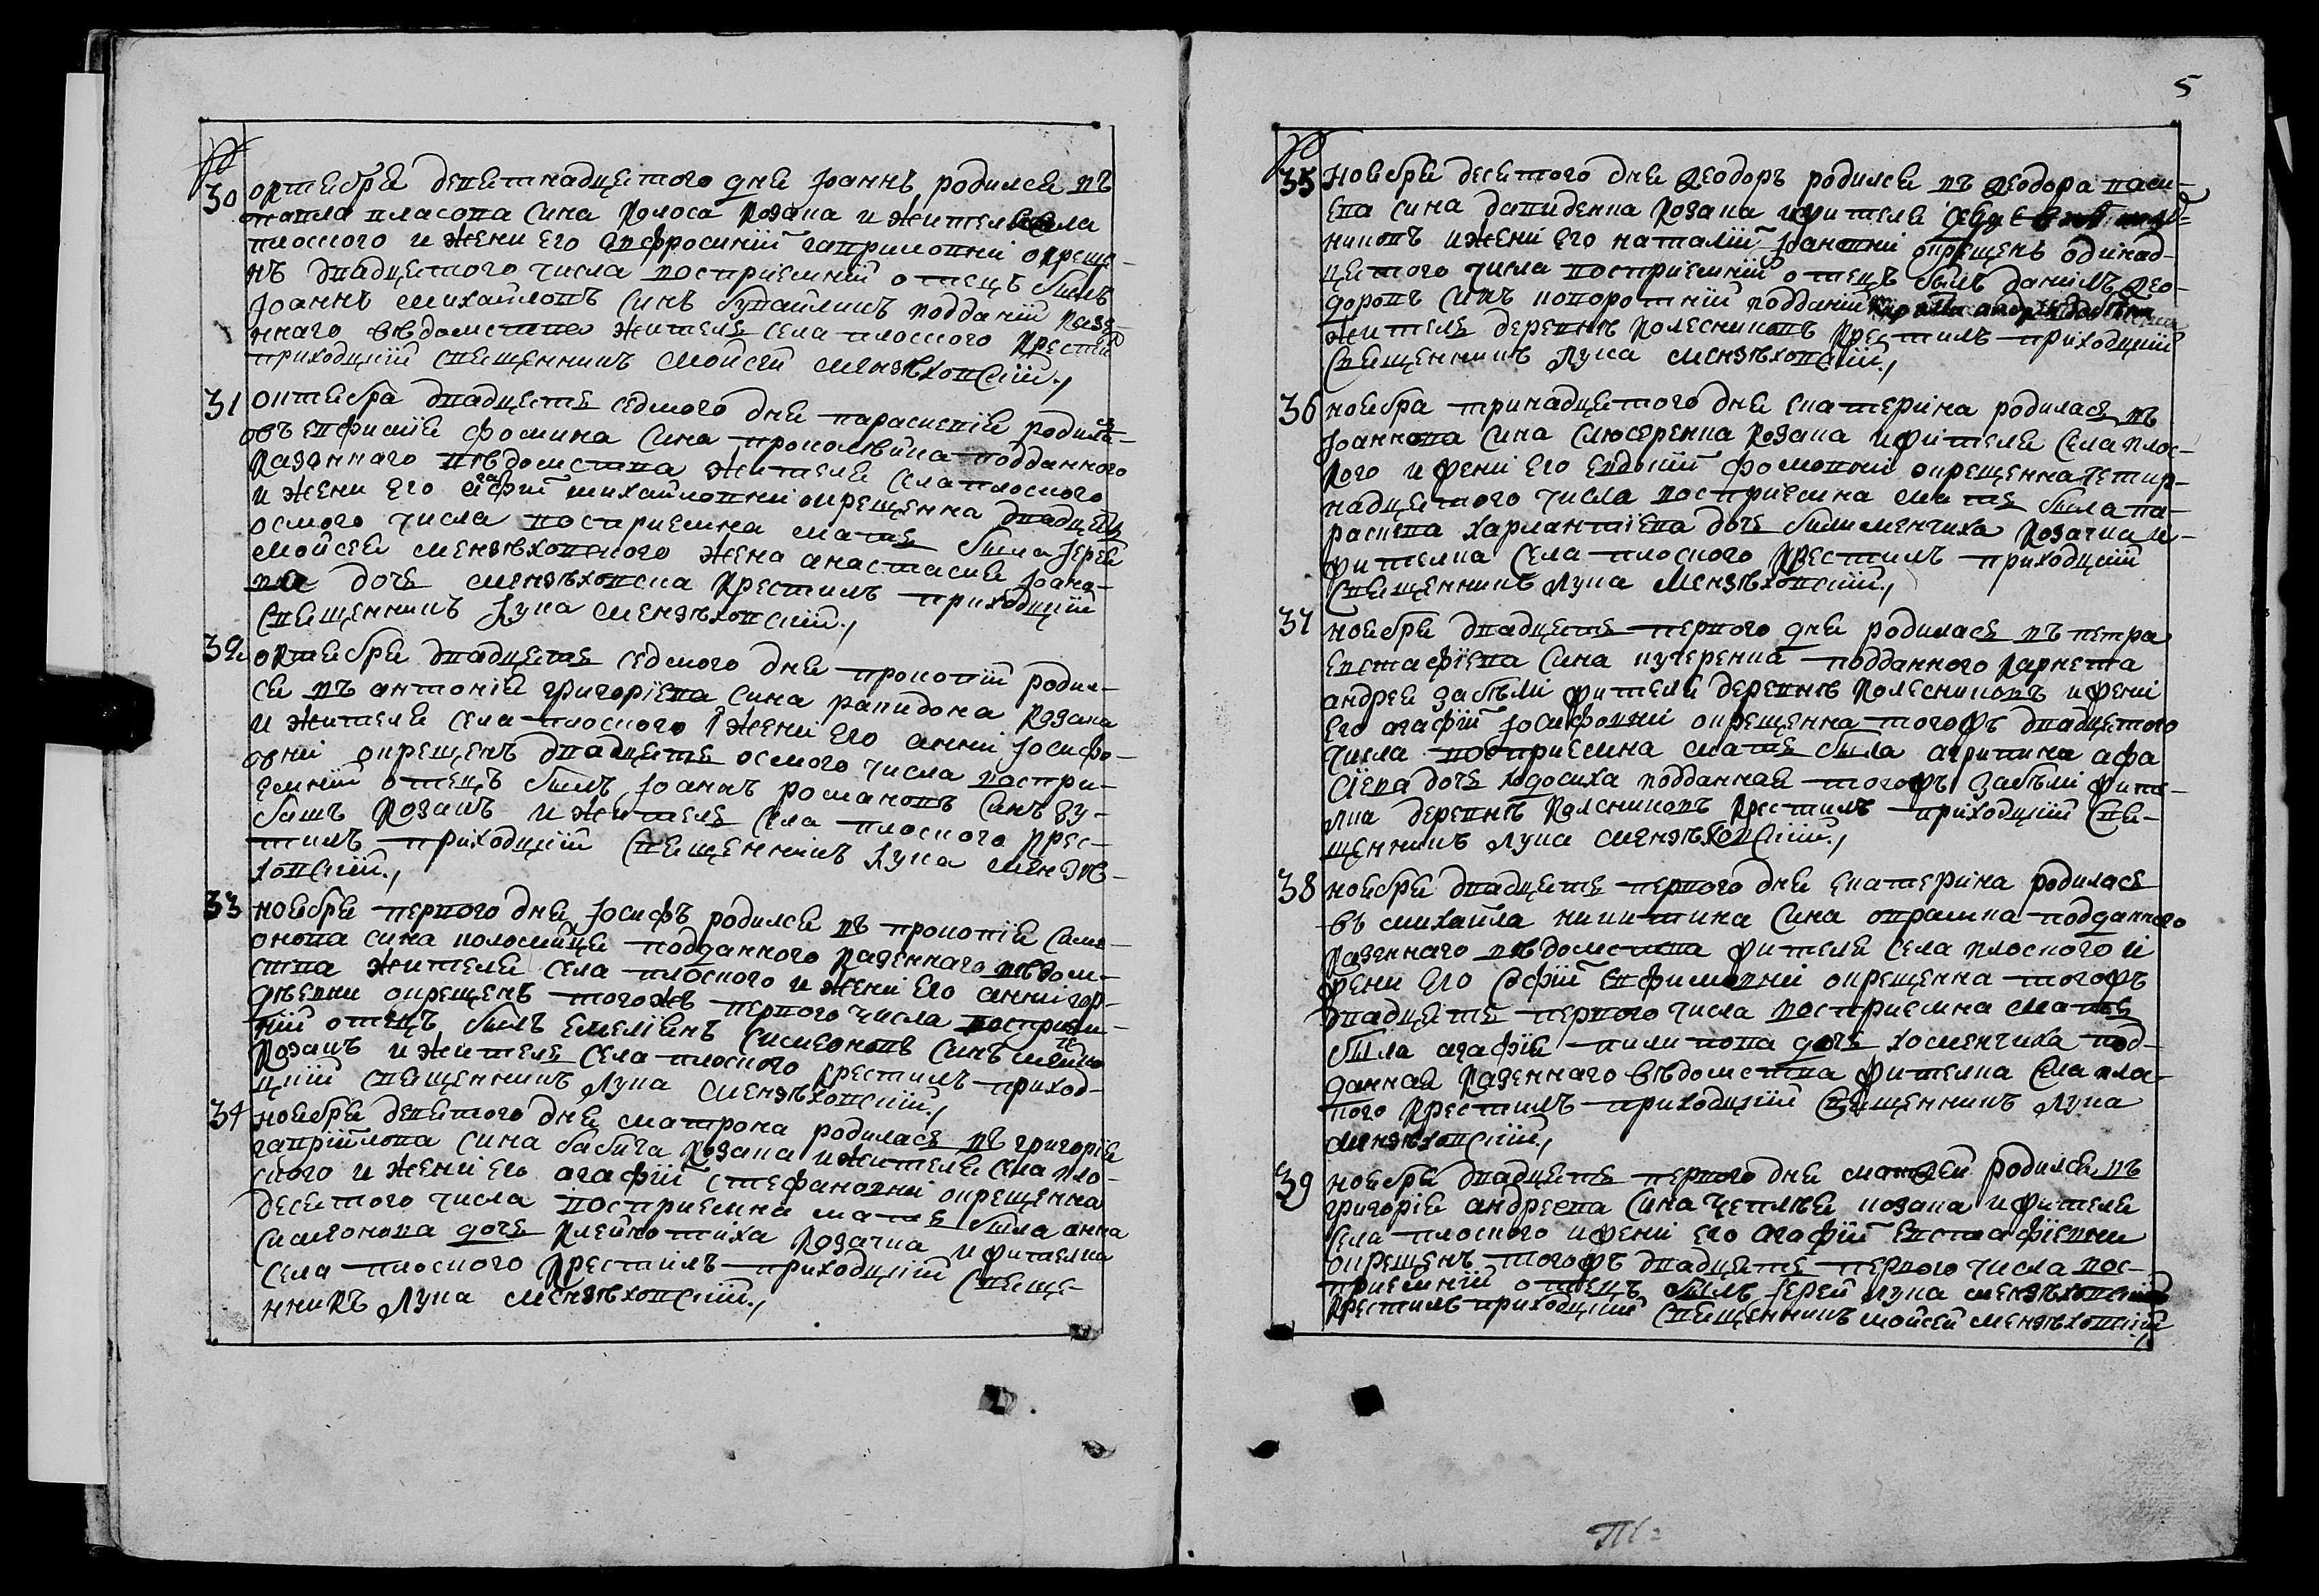 5
№
30 октября деветнадцятого дня Іоаннъ родился въ
павла власова сина колоса козака и жителя села
плоского и жени его евфросиніи гавриловни окреще-
нъ двадцятого числа восприемній отецъ билъ
Іоаннъ михайловъ синъ бувайликъ подданій казе-
нного вѣдомства житель села плоского крестил
приходцкій священникъ Мойсей Мензѣховскій./
31 октября двадцять седмого дня параскевія родилас
въ евфимія фомина сина проколѣйка подданного
казенного вѣдомства жителя села плоского
и жени его агафіи михайловни окрещенна двадцять
осмого числа восприемна мать била Іерея
Мойсея Мензѣховского жена анастасия Іоано-
ва дочь Мензѣховска крестилъ приходцкій
священникъ Лука Мензѣховскій./
32 октября двадцять седмого дня прокопій родил-
ся въ антонія григоріева сина рапидона козака
и жителя села плоского і жени его анни Іосифо-
вни окрещенъ двадцять осмого числа воспри-
емній отецъ билъ Іоанъ романовъ синъ зу-
башъ козакъ и житель села плоского крес-
тилъ приходцкій священникъ Лука Мензѣ-
ховскій./
33 ноября первого дня Іосифъ родился въ прокопія сим-
онова сина коломійця подданного казенного вѣдом-
ства жителя села плоского и жени его анни гор-
дѣевни окрещенъ того жъ первого числа восприем-
ній отецъ билъ емеліянъ симеоновъ синъ
козакъ и житель села плоского крестилъ приход-
цкій священникъ Лука Мензѣховскій./
34 ноября девятого дня матрона родилась въ григорія
гавріилова сина бабича козака и жителя села пло-
ского и жени его агафіи стефановни окрещенна
десятого числа восприемна мать била анна
симонова дочь клейнотиха козачка и жителка
села плоского крестилъ приходцкій свяще-
нникъ Лука Мензѣховскій./
№
35 ноября десятого дня Ѳеодоръ родился въ Ѳеодора васи-
ева сина давиденка козака и жителя
никовъ и жени его наталіи Іоановни окрещенъ одинад-
цятого числа восприемній отецъ билъ Даніилъ Ѳео-
доровъ синъ коворотній подданій
житель деревнѣ колесниковъ крестилъ приходцкій
священникъ Лука Мензѣховскій./
36 ноября тринадцятого дня екатерина родилась въ
Іоаннова сина слюсеренка козака и жителя села плос-
кого и жени его евдокіи фомовни окрещенна четир-
надцятого числа восприемна мать била па-
раскева харлантіева дочь билименчиха козачка и
жителка села плоского крестилъ приходцкій
священникъ Лука Мензѣховскій./
37 ноября двадцять первого дня родилась въ петра
евстафіева сина кучеренка подданного корнета
андрея забѣли жителя деревнѣ колесниковъ и жени
его агафіи Іосифовни окрещенна того жъ двадцятого
числа восприемна мать била агрипина афа
сіева дочь ходосиха подданная того жъ забѣли жите-
лка деревнѣ колесниковъ крестилъ приходцкій свя-
щенникъ Лука Мензѣховскій./
38 ноября двадцять первого дня екатерина родилась
въ михайла никитина сина охрамка подданного
казенного вѣдомства жителя села плоского и
жени его софіи евфимовни окрещенна того жъ
двадцять первого числа восприемна мать
била агафія филипова дочь хоменчиха под-
данная казенного вѣдомства жителка села пло-
кого крестилъ приходцкій священникъ Лука
Мензѣховскій./
39 ноября двадцять первого дня матѳей родился въ
григорія андреева сина чеплѣя козака и жителя
села плоского и жени его агафіи евстафіевни
окрещенъ того жъ двадцять первого числа вос-
приемній отецъ билъ Іерей Лука Мензѣховскій
крестилъ приходцкій священникъ Мойсей Мензѣховскій
./